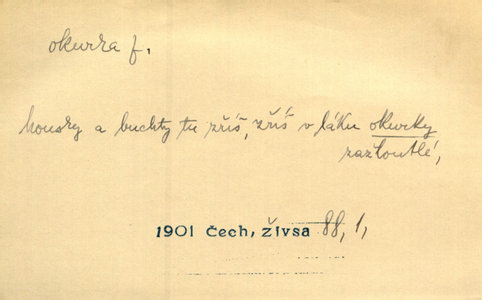 okurka f.
housky a buchty tu zříš, zříš v láku okurky
zažloutlé,
1901 Čech, Živsa 88, 1,